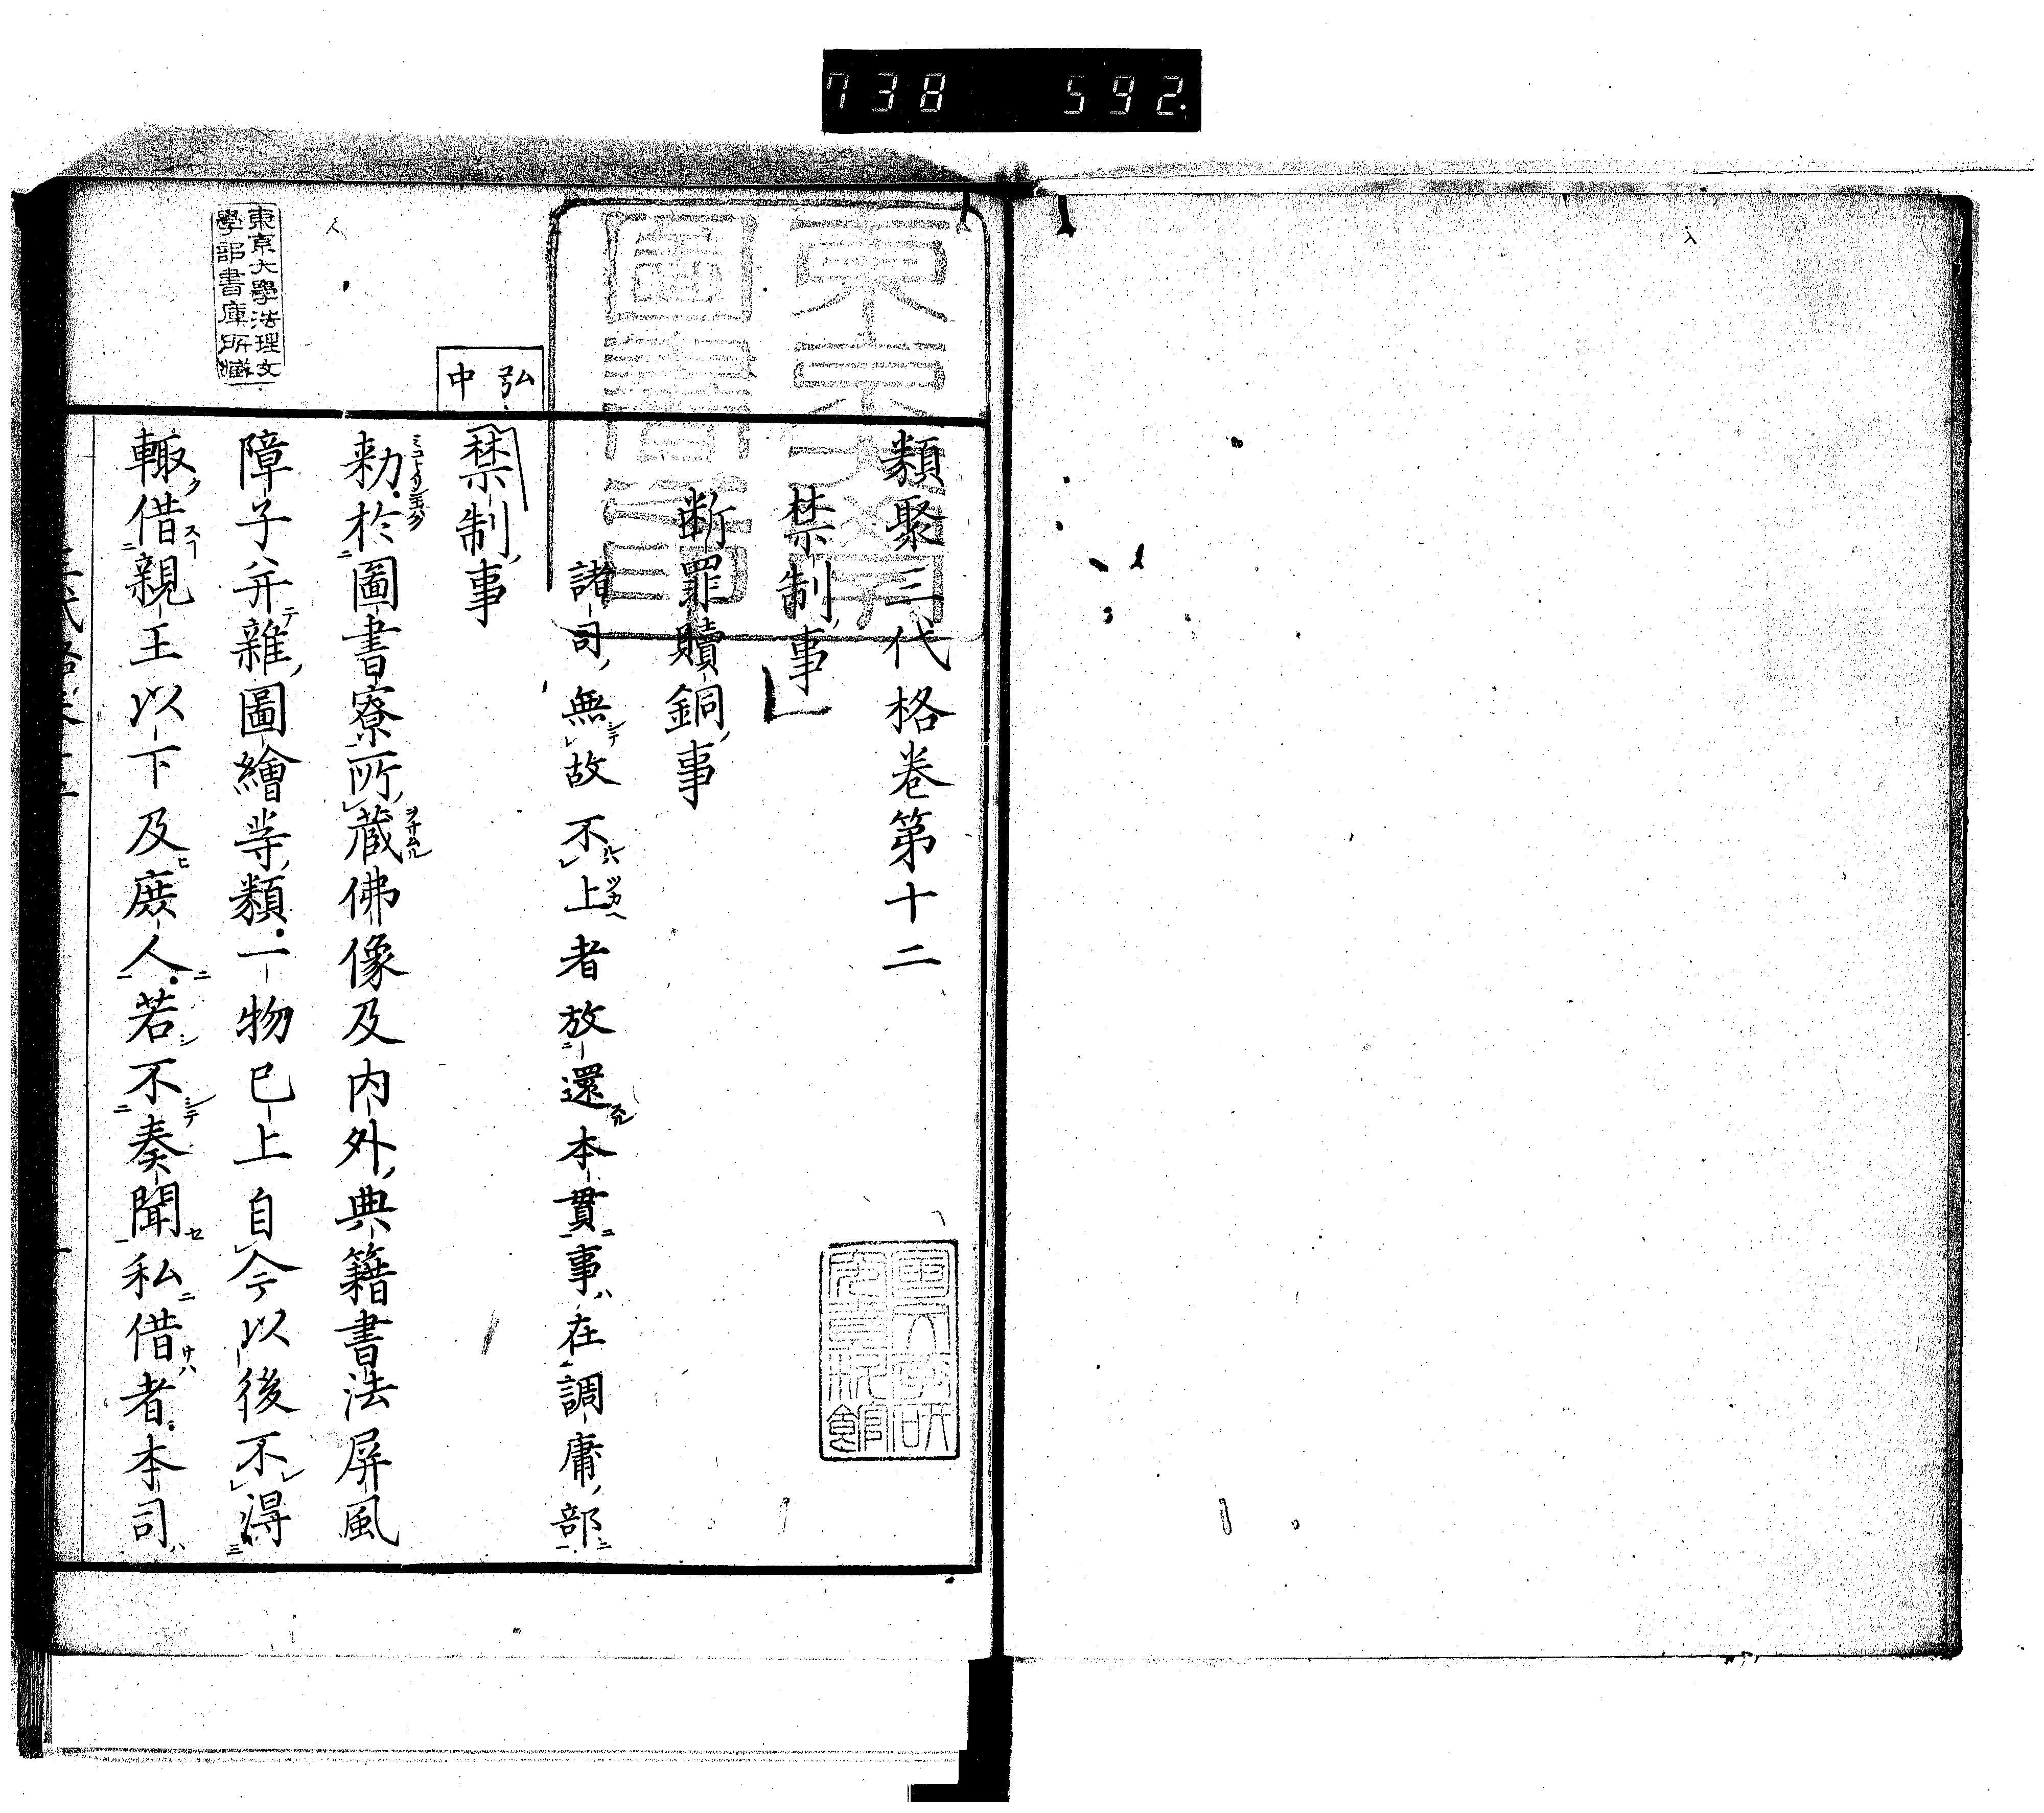 738 592
東京大學圖書印
類聚三代格卷第十二
禁制事
断罪贖銅事
諸司無故不上者放還本貫事在調庸部
弘
中
禁制事
勅於圖書寮所蔵佛像及内外典籍書法屏風
障子并雜圖繪等類一物已上自今以後不得
輙借親王以下及庶人若不奏聞私借者本司
東京大學法理文
學部書庫所藏